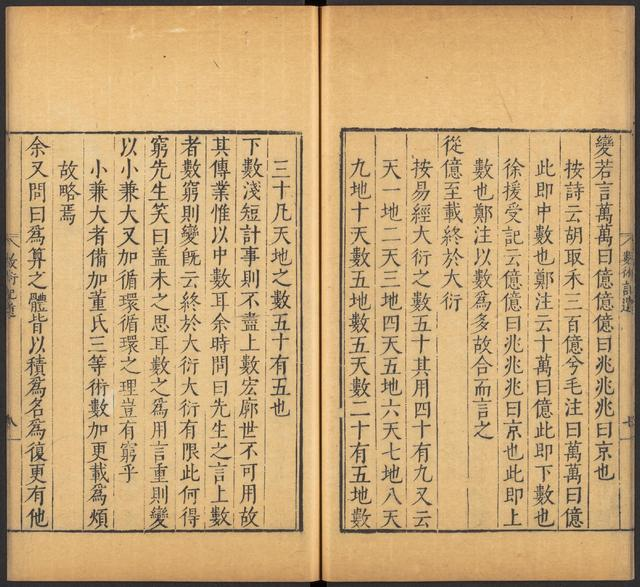 變若言萬萬曰億億億曰兆兆兆曰京也
按詩云胡取禾三百億兮毛注曰萬萬曰億
此即中數也鄭注云十萬曰億此即下數也
徐援受記云億億曰兆兆兆曰京也此即上
數也鄭注以數為多故合而言之
從億至載終於大衍
按易經大衍之數五十其用四十有九又云
天一地二天三地四天五地六天七地八天
九地十天數五地數五天數二十有五地數
數術記遺
七
三十凡天地之數五十有五也
下數淺短計事則不盡上數宏廓世不可用故
其傳業惟以中數耳余時問曰先生之言上數
者數窮則變旣云終於大衍大衍有限此何得
窮先生笑曰蓋未之思耳數之為用言重則變
以小兼大又加循環循環之理豈有窮乎
小兼大者備加董氏三等術數加更載為煩
故略焉
余又問曰為算之體皆以積為名為復更有他
數術記遺
八